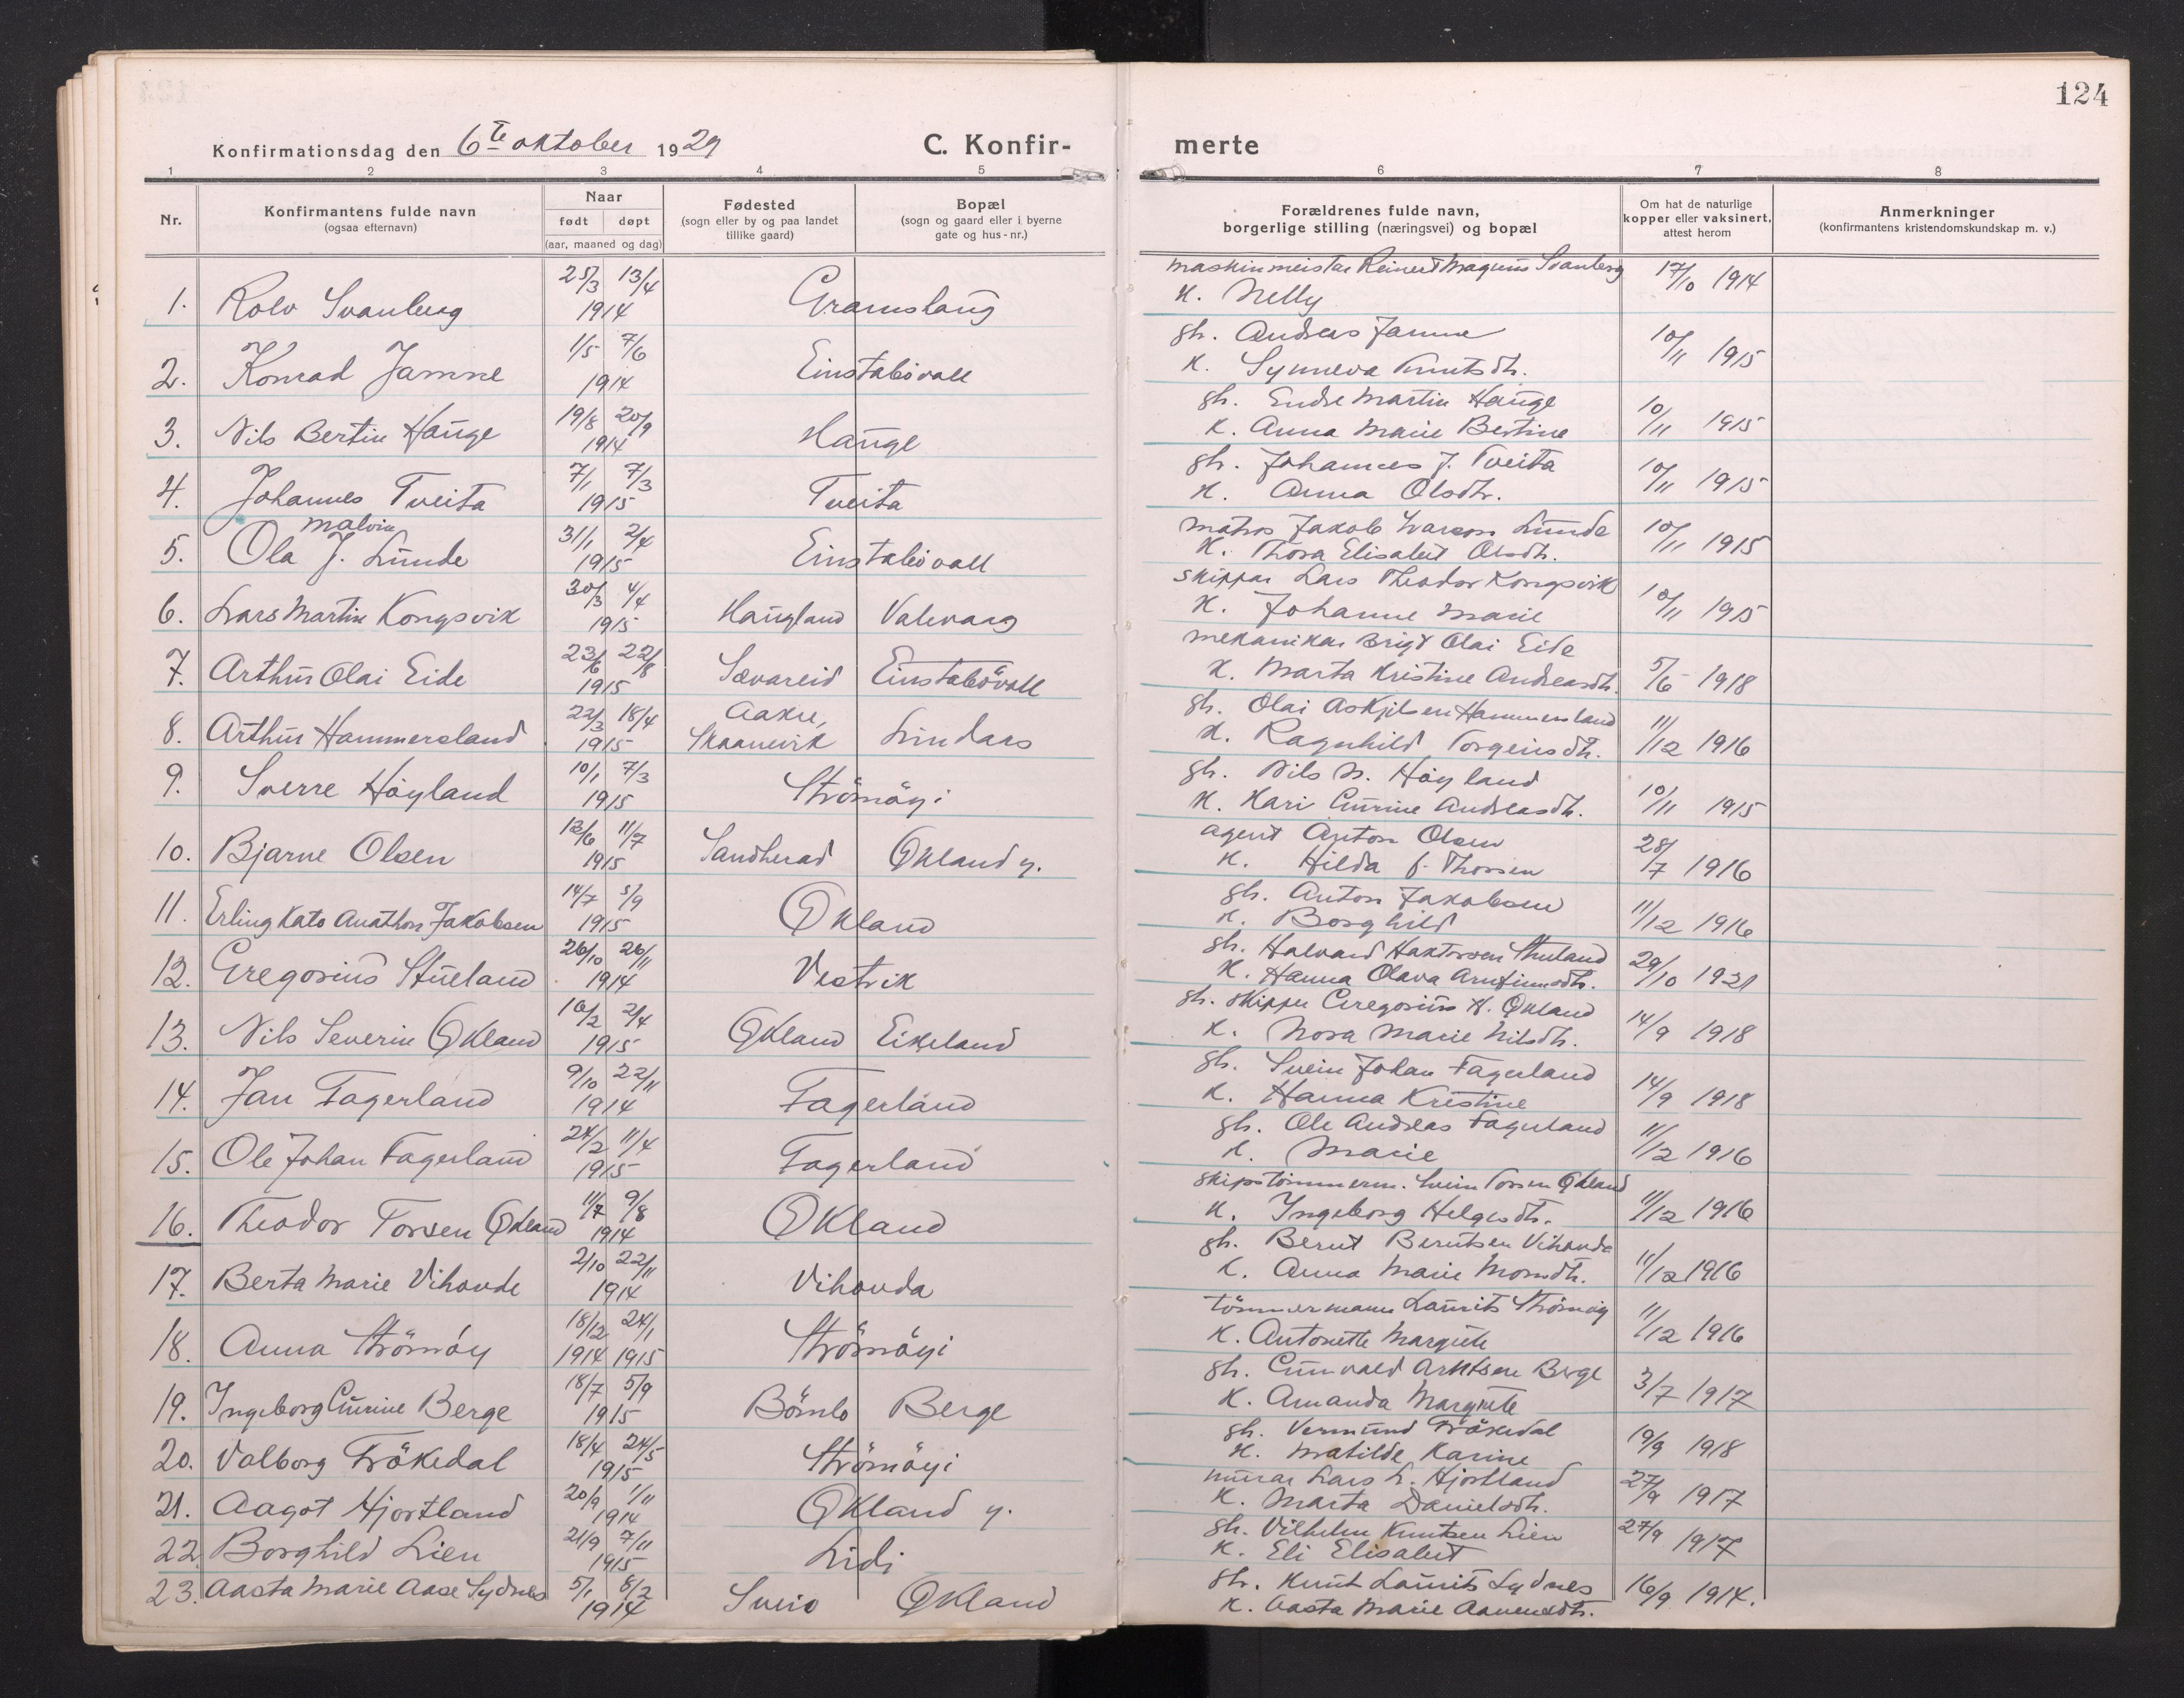 124
Konfirmationsdag den 6te oktober 1929
C. Konfir-
merte
1 2 3 4 5 6 7 8
Nr.
Konfirmantens fulde navn
(ogsaa efternavn)
Naar
født døpt
(aar, maaned og dag)
Fødested
(sogn eller by og paa landet
tillike gaard)
Bopæl
(sogn og gaard eller i byerne
gate og hus-nr.)
Forældrenes fulde navn,
borgerlige stilling (næringsvei) og bopæl
Om hat de naturlige
kopper eller vaksinert,
attest herom
Anmerkninger
(konfirmantens kristendomskundskap m. v.)
25/3 13/4 maskinmeistar Reinert Magnus Svanberg 17/10 1914
1. Rolv Svanberg 1914 Gramshaug K. Nelly
1/5 7/6 gh. Andreas Jamne 10/11 1915
2. Konrad Jamne 1914 Einstabøvoll K. Synneva Knutsdtr.
19/8 20/9 gh. Endre Martin Hauge 10/11 1915
3. Nils Bertin Hauge 1914 Hauge K. Anna Marie Bertine
7/1 7/3 gh. Johannes J. Tveita 10/11 1915
4. Johannes Tveita 1915 Tveita K. Anna Olsdtr.
Malvin 31/1 2/4 matros Jakob Ivarson Lunde 10/11 1915
5. Ola J. Lunde 1915 Einstabøvoll K. Thora Elisabet Olsdtr.
30/3 4/4 skippar Lars Theodor Kongsvik 10/11 1915
6. Lars Martin Kongsvik 1915 Haugland Valevaag K. Johanne Marie
23/6 22/8 mekanikar Brigt Olai Eide
7. Arthur Olai Eide 1915 Sævareid Einstabövoll K. Marta Kristine Andreasdtr. 5/6 1918
22/3 18/4 Aakre, gh. Olai Askjelsen Hammersland 11/12 1916
8. Arthur Hammersland 1915 Skaanevik Lindaas K. Ragnhild Torgeirsdtr.
10/1 7/3 gh. Nils N. Höyland 10/11 1915
9. Sverre Höyland 1915 Strömöyi K. Kari Gurine Andreasdtr.
13/6 11/7 agent Anton Olsen 28/7 1916
10. Bjarne Olsen 1915 Sandherad Økland y. K. Hilda f. Thorsen
14/7 5/9 gh. Anton Jakobsen 11/12 1916
11. Erling Kato Anathon Jakobsen 1915 Økland K. Borghild
26/10 26/11 gh. Halvard Haktorsen Stueland 29/10 1921
12. Gregorius Stueland 1914 Vestvik K. Hanna Olava Arnfinnsdtr.
16/2 2/4 gh. skipper Gregorius H. Økland 14/9 1918
13. Nils Severin Økland 1915 Økland Eikeland K. Nora Marie Nilsdtr.
9/10 22/11 gh. Svein Johan Fagerland 14/9 1918
14. Jan Fagerland 1914 Fagerland K. Hanna Kristine
24/2 11/4 gh. Ole Andreas Fagerland 11/12 1916
15. Ole Johan Fagerland 1915 Fagerland K. Marie
11/7 9/8 skipstömmerm. Svein Torsen Økland 11/12 1916
16. Theodor Torsen Økland 1914 Økland K. Ingeborg Helgesdtr.
2/10 22/11 gh. Bernt Berntsen Vihovda 11/12 1916
17. Berta Marie Vihovde 1914 Vihovda K. Anna Marie Monsdtr.
18/12 24/1 tömmermann Laurits Strömöy 11/12 1916
18. Anna Strömöy 1914 1915 Strömöyi K. Antonette Margrete
18/7 5/9 gh. Gunvald Arntsen Berge 3/7 1917
19. Ingeborg Gurine Berge 1915 Bömlo Berge K. Amanda Margrete
18/4 24/5 gh. Vermund Frökedal 19/9 1918
20. Valborg Frökedal 1915 Strömöyi K. Matilde Karine
20/9 1/11 murar Lars L. Hjortland 27/9 1917
21. Aagot Hjortland 1914 Økland y. K. Marta Danielsdtr.
21/9 7/11 gh. Vilhelm Knutsen Lien 27/9 1917
22. Borghild Lien 1915 Lidi K. Eli Elisabet
5/1 8/2 gh. Knut Laurits Sydnes 16/9 1914.
23. Aasta Marie Aase Sydnes 1914 Sveio Økland K. Aasta Marie